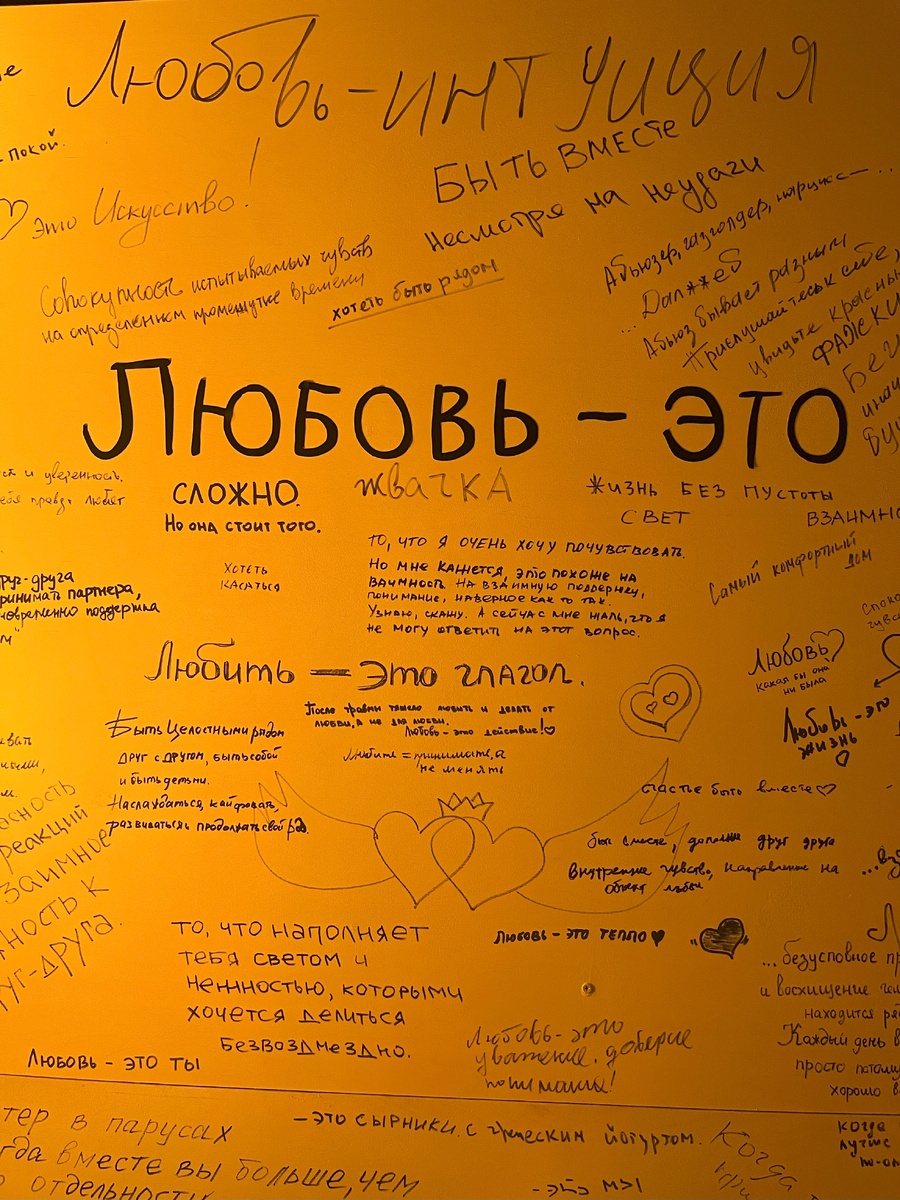 Любовь-интуиция
покой.
это Искусство!
БЫТЬ ВМЕСТЕ
несмотря на неудачи
Совокупность испытываемых чувств
на определенном промежутке времени
хотеть быть рядом
Абьюзер, газлолдер, нарцисс—...
...Долп**еб
Абьюз бывает разным
Прислушайтесь к себе,
увидьте красные
ФЛАЖКИ
ЛЮБОВЬ - ЭТО
и уверенность.
правда любят
СЛОЖНО.
Но она стоит того.
жвачка
ЖИЗНЬ БЕЗ ПУСТОТЫ
СВЕТ
ХОТЕТЬ
КАСАТЬСЯ
ТО, ЧТО Я ОЧЕНЬ ХОЧУ ПОЧУВСТВОВАТЬ.
Но мне кажется, это похоже на
взаимность. На взаимную поддержку,
понимание, наверное как то так.
Узнаю, скажу. А сейчас мне жаль, что я
не могу ответить на этот вопрос.
Самый комфортный
дом
друг-друга
принимать партнера,
поддержка
Любить — это глагол.
После травмы тяжело любить и делать от
любви, а не для любви.
Любовь - это действие!♡
Любить = принимать, а
не менять
Любовь
какая бы она
ни была
Любовь - это
жизнь
Быть Целостными рядом
друг с другом, быть собой
и быть детьми.
Наслаждаться, кайфовать,
развиваться и продолжать свой род.
счастье быть вместе♡
реакций
друг друга
Внутреннее чувство, направленное на
объект любви
друг-друга.
ТО, ЧТО НАПОЛНЯЕТ
ТЕБЯ СВЕТОМ И
НЕЖНОСТЬЮ, КОТОРЫМИ
ХОЧЕТСЯ ДЕЛИТЬСЯ
БЕЗВОЗДМЕЗДНО.
ЛЮБОВЬ - ЭТО ТЕПЛО♥
...безусловное
и восхищение
находится
Каждый день
просто потому
хорошо
Любовь - это
уважение. доверие
понимание!
ЛЮБОВЬ - ЭТО ТЫ
в парусах
вместе вы больше, чем
отдельности
- ЭТО СЫРНИКИ с греческим йогуртом.
- это мы
Когда
когда
лучше